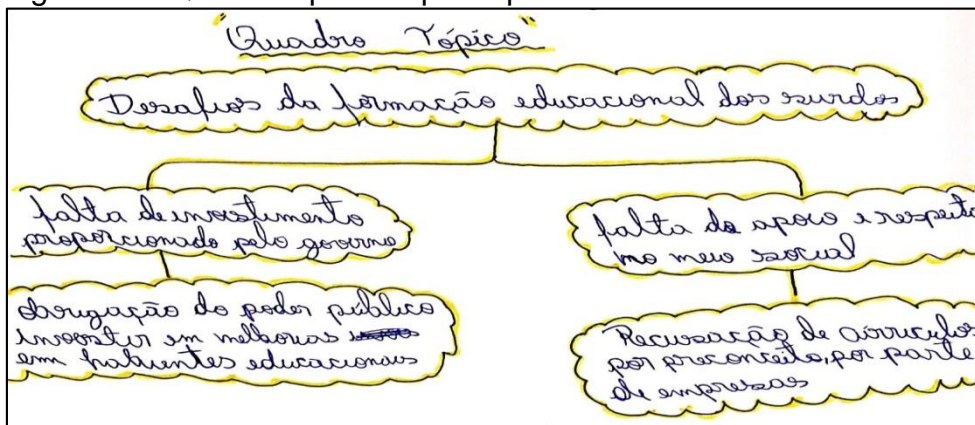 "Quadro Tópico"
Desafios da formação educacional dos surdos
falta de investimento
proporcionado pelo governo
falta de apoio e respeito
no meio social
obrigação do poder público
investir em melhorias
em habientes educacionais
Recusação de currículos
por preconceito, por parte
de empresas